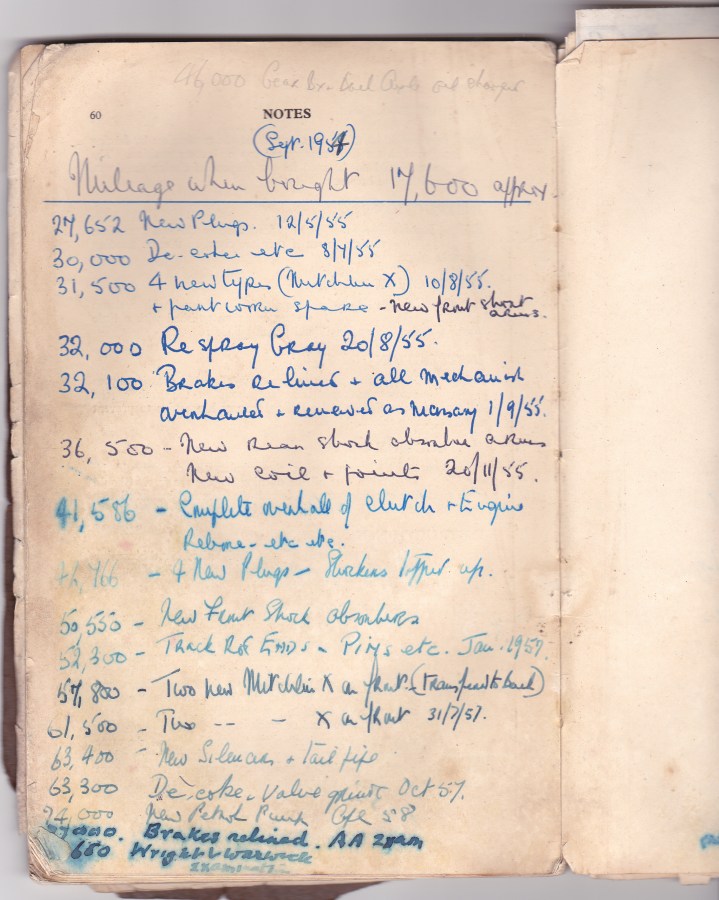 46,000 Gear Box - Back Axle and
60
NOTES
(Sept. 1954)
Mileage when bought 17,600 approx.
27,652 New Plugs. 12/5/55
30,000 De-coke etc 8/7/55
31,500 4 new types (Mitchlin X) 10/8/55.
+ part worn spare - New front shock arms.
32,000 Respray Gray 20/8/55.
32,100 Brakes relined + all Mechanism
overhauled + renewed as necessary 1/9/55.
36,500 - New rear shock absorber arms
New coil + points 20/11/55.
41,586 - Complete overhall of clutch + Engine
Rebore - etc etc.
46,766 - 4 New Plugs - Shockers topped up.
50,550 - New Front Shock absorbers
52,300 - Track Rod Ends - Pins etc. Jan. 1957.
57,800 - Two new Mitchlin X on front - (transferred to back)
61,500 - Two -- - X on front 31/7/57.
63,400 - New Silencer + tail pipe
63,300 De-coke - valve grind Oct 57.
74,000 New Petrol Pump 58
Brakes relined. AA exam
650 Wright Warwick